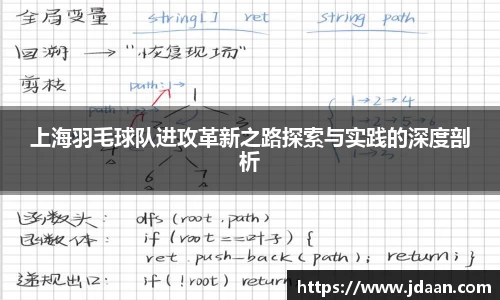 全局变量 string[] ret string path
回溯 → "恢复现场"
剪枝
path:1→
path:1→
1
1→2→4
1→2→5→6
上海羽毛球队进攻革新之路探索与实践的深度剖
析
函数头: dfs (root, path)
函数体: if (root == 叶子) {
ret.push_back (path); return; }
递规出口: if (!root) return
https://www.jdaan.com